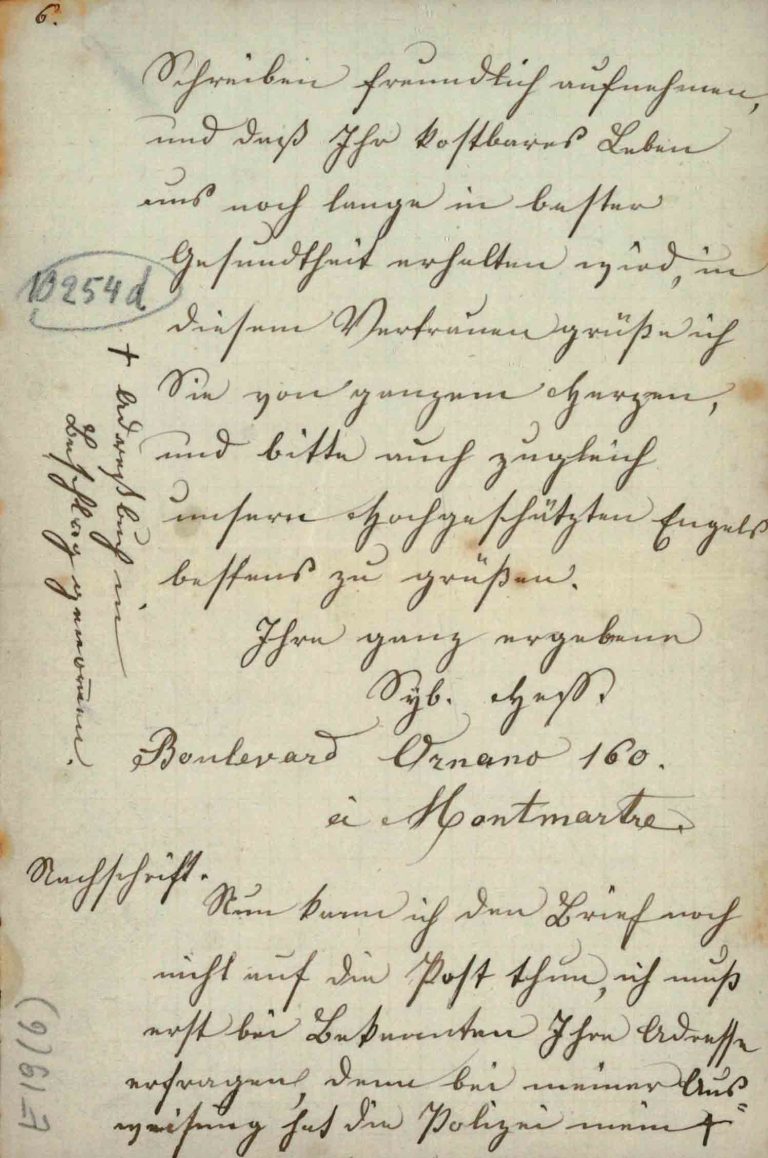 6.
Schreiben freundlich aufnehmen,
und daß Ihr kostbares Leben
uns noch lange in bester
Gesundtheit erhalten wird, in
diesem Vertrauen grüße ich
Sie von ganzem Herzen,
und bitte auch zugleich
unsern Hochgeschätzten Engels
bestens zu grüßen.
Ihre ganz ergebene
Syb. Hess.
Boulevard Ornano 160.
à Montmartre.
Nachschrift.
Nun kann ich den Brief noch
nicht auf die Post thun, ich muß
erst bei Bekannten Ihre Adresse
erfragen, denn bei meiner Aus⸗
weisung hat die Polizei mein +
+ Adreßbuch in
Beschlag genom̅en.
B254d
F 19/(6)